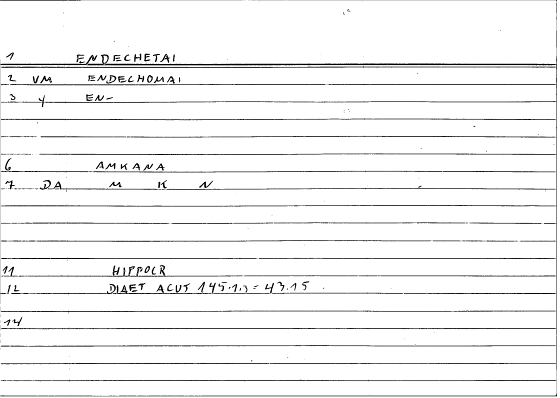 1 ENDECHETAI
2 VM ENDECHOMAI
3 y EN-
6 AMKANA
7 DA M K N
11 HIPPOCR
12 DIAET ACUT 145.13 = 43.15
14